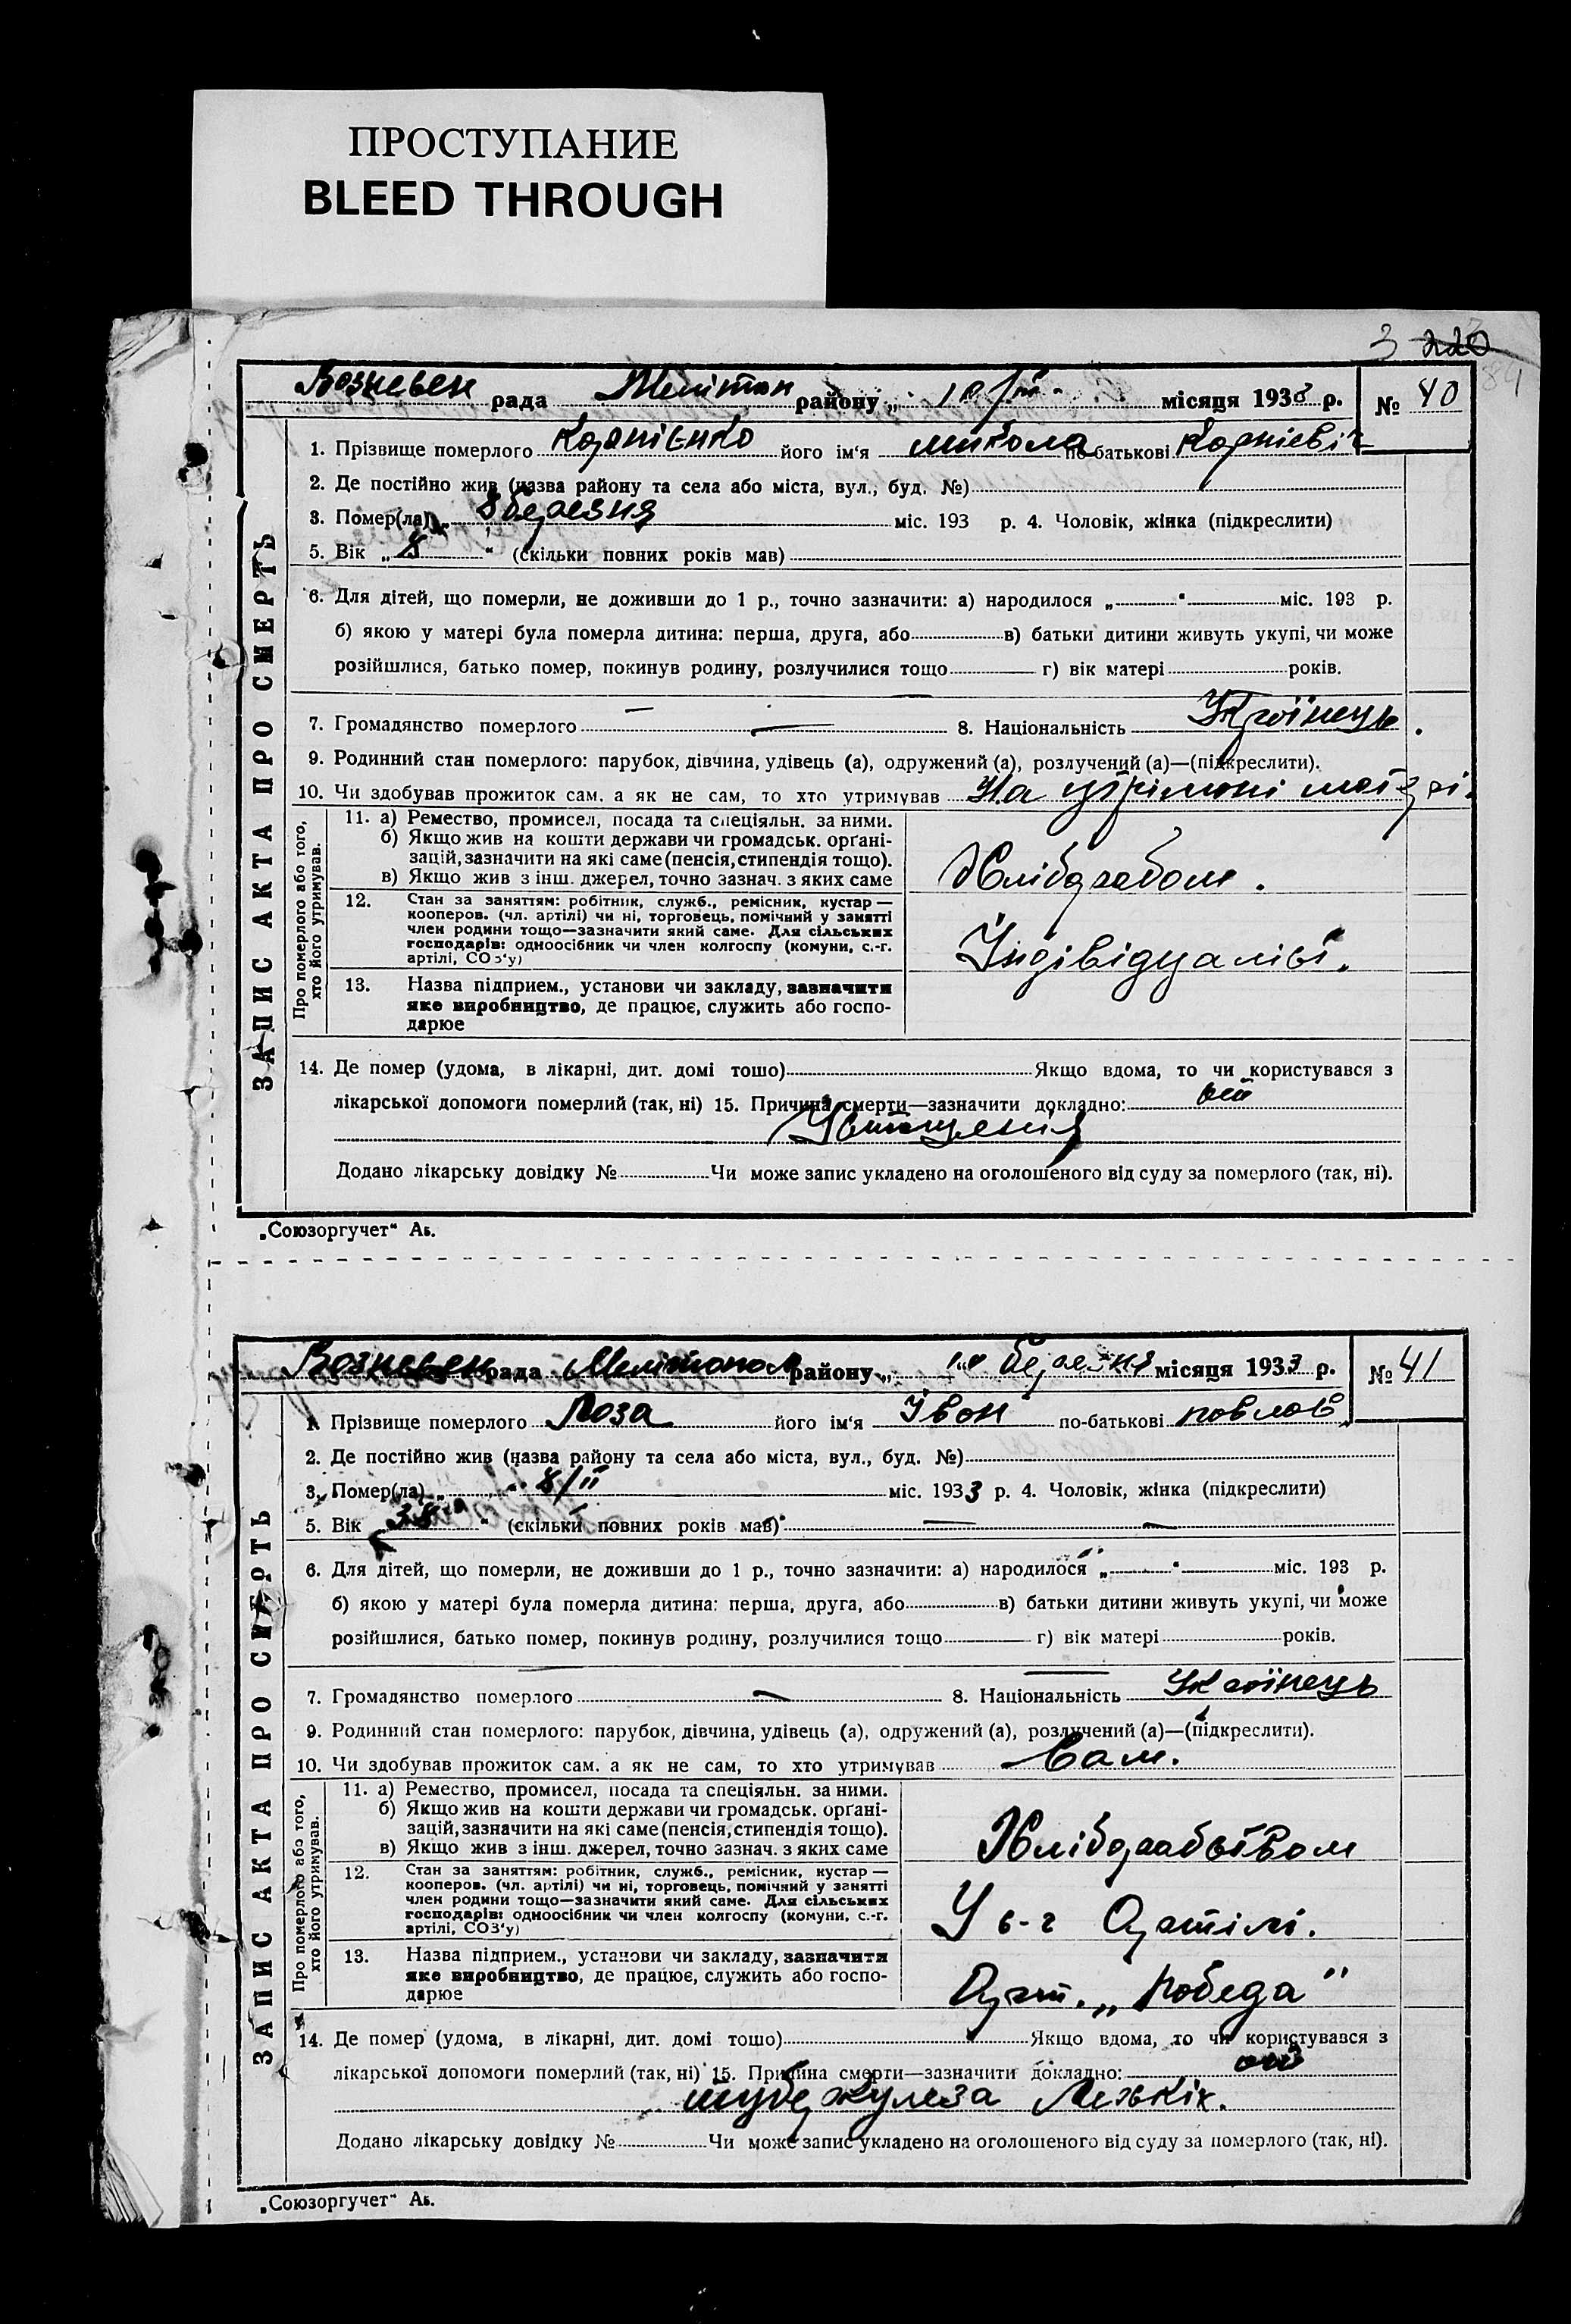 ПРОСТУПАНИЕ
BLEED THROUGH
3 220
Вознесен рада Мелітоп району „ 10/III місяця 1933 р. № 40
1. Прізвище померлого Корнієнко його ім'я микола по батькові Корнієвіч
2. Де постійно жив (назва району та села або міста, вул., буд. №)
3. Помер(ла) „ 8 березня міс. 193 р. 4. Чоловік, жінка (підкреслити)
5. Вік „ 8 " (скільки повних років мав)
6. Для дітей, що померли, не доживши до 1 р., точно зазначити: а) народилося „ " міс. 193 р.
б) якою у матері була померла дитина: перша, друга, або в) батьки дитини живуть укупі, чи може
розійшлися, батько помер, покинув родину, розлучилися тощо г) вік матері років.
7. Громадянство померлого — 8. Національність Украінець.
9. Родинний стан померлого: парубок, дівчина, удівець (а), одружений (а), розлучений (а)—(підкреслити).
10. Чи здобував прожиток сам. а як не сам, то хто утримував На утрімані матері.
ЗАПИС АКТА ПРО СМЕРТЬ
Про померлого або того, хто його утримував.
11. а) Ремество, промисел, посада та спеціяльн. за ними.
б) Якщо жив на кошти держави чи громадськ. орґані-
зацій, зазначити на які саме (пенсія, стипендія тощо).
в) Якщо жив з інш. джерел, точно зазнач. з яких саме
Хлібороbом.
12. Стан за заняттям: робітник, служб., ремісник, кустар —
кооперов. (чл. артілі) чи ні, торговець, помічний у занятті
член родини тощо—зазначити який саме. Для сільських
господарів: одноосібник чи член колгоспу (комуни, с.-г.
артілі, СОЗ'у)
Індівідуаліст.
13. Назва підприєм., установи чи закладу, зазначити
яке виробництво, де працює, служить або госпо-
дарює
14. Де помер (удома, в лікарні, дит. домі тощо) Якщо вдома, то чи користувався з
лікарської допомоги померлий (так, ні) 15. Причина смерти—зазначити докладно: от
Істощенія
Додано лікарську довідку № Чи може запис укладено на оголошеного від суду за померлого (так, ні).
„Союзоргучет" Аб.
Вознесен рада Мелітопол району „ 10 березня місяця 1933 р. № 41
1. Прізвище померлого Лоза його ім'я Іван по-батькові павлов
2. Де постійно жив (назва району та села або міста, вул., буд. №)
3. Помер(ла) „ 8/II міс. 1933 р. 4. Чоловік, жінка (підкреслити)
5. Вік 38 " (скільки повних років мав)
6. Для дітей, що померли, не доживши до 1 р., точно зазначити: а) народилося „ " міс. 193 р.
б) якою у матері була померла дитина: перша, друга, або в) батьки дитини живуть укупі, чи може
розійшлися, батько помер, покинув родину, розлучилися тощо г) вік матері років.
7. Громадянство померлого — 8. Національність Украінець
9. Родинний стан померлого: парубок, дівчина, удівець (а), одружений (а), розлучений (а)—(підкреслити).
10. Чи здобував прожиток сам. а як не сам, то хто утримував Сам.
ЗАПИС АКТА ПРО СМЕРТЬ
Про померлого або того, хто його утримував.
11. а) Ремество, промисел, посада та спеціяльн. за ними.
б) Якщо жив на кошти держави чи громадськ. орґані-
зацій, зазначити на які саме (пенсія, стипендія тощо).
в) Якщо жив з інш. джерел, точно зазнач. з яких саме
Хлібораbством
12. Стан за заняттям: робітник, служб., ремісник, кустар —
кооперов. (чл. артілі) чи ні, торговець, помічний у занятті
член родини тощо—зазначити який саме. Для сільських
господарів: одноосібник чи член колгоспу (комуни, с.-г.
артілі, СОЗ'у)
У с-г Артілі.
13. Назва підприєм., установи чи закладу, зазначити
яке виробництво, де працює, служить або госпо-
дарює
Арт. „Победа"
14. Де помер (удома, в лікарні, дит. домі тощо) Якщо вдома, то чи користувався з
лікарської допомоги померлий (так, ні) 15. Причина смерти—зазначити докладно: от
туберкулеза Легькіх.
Додано лікарську довідку № Чи може запис укладено на оголошеного від суду за померлого (так, ні).
„Союзоргучет" Аб.